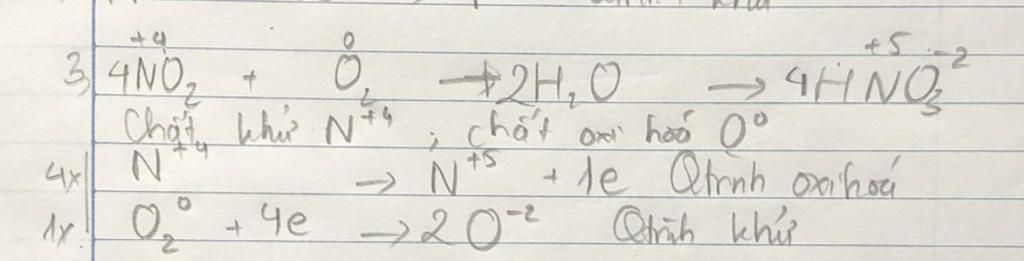 +4 0 +5 -2
3, 4NO₂ + O₂ → 2H₂O → 4HNO₃
Chất khử N⁺⁴ ; chất oxi hoá O⁰
4x| N⁺⁴ → N⁺⁵ + 1e Qtrình oxi hoá
1x| O₂⁰ + 4e → 2O⁻² Qtrình khử